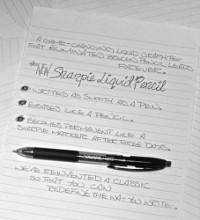 A GAME-CHANGING LIQUID GRAPHITE
THAT ELIMINATES BROKEN PENCIL LEADS
FOREVER.
THE NEW Sharpie Liquid Pencil
• WRITES AS SMOOTH AS A PEN.
• ERASES LIKE A PENCIL.
• BECOMES PERMANENT LIKE A
SHARPIE MARKER AFTER THREE DAYS.
WE'VE REINVENTED A CLASSIC
SO THAT YOU CAN
REDEFINE THE WAY YOU WRITE.